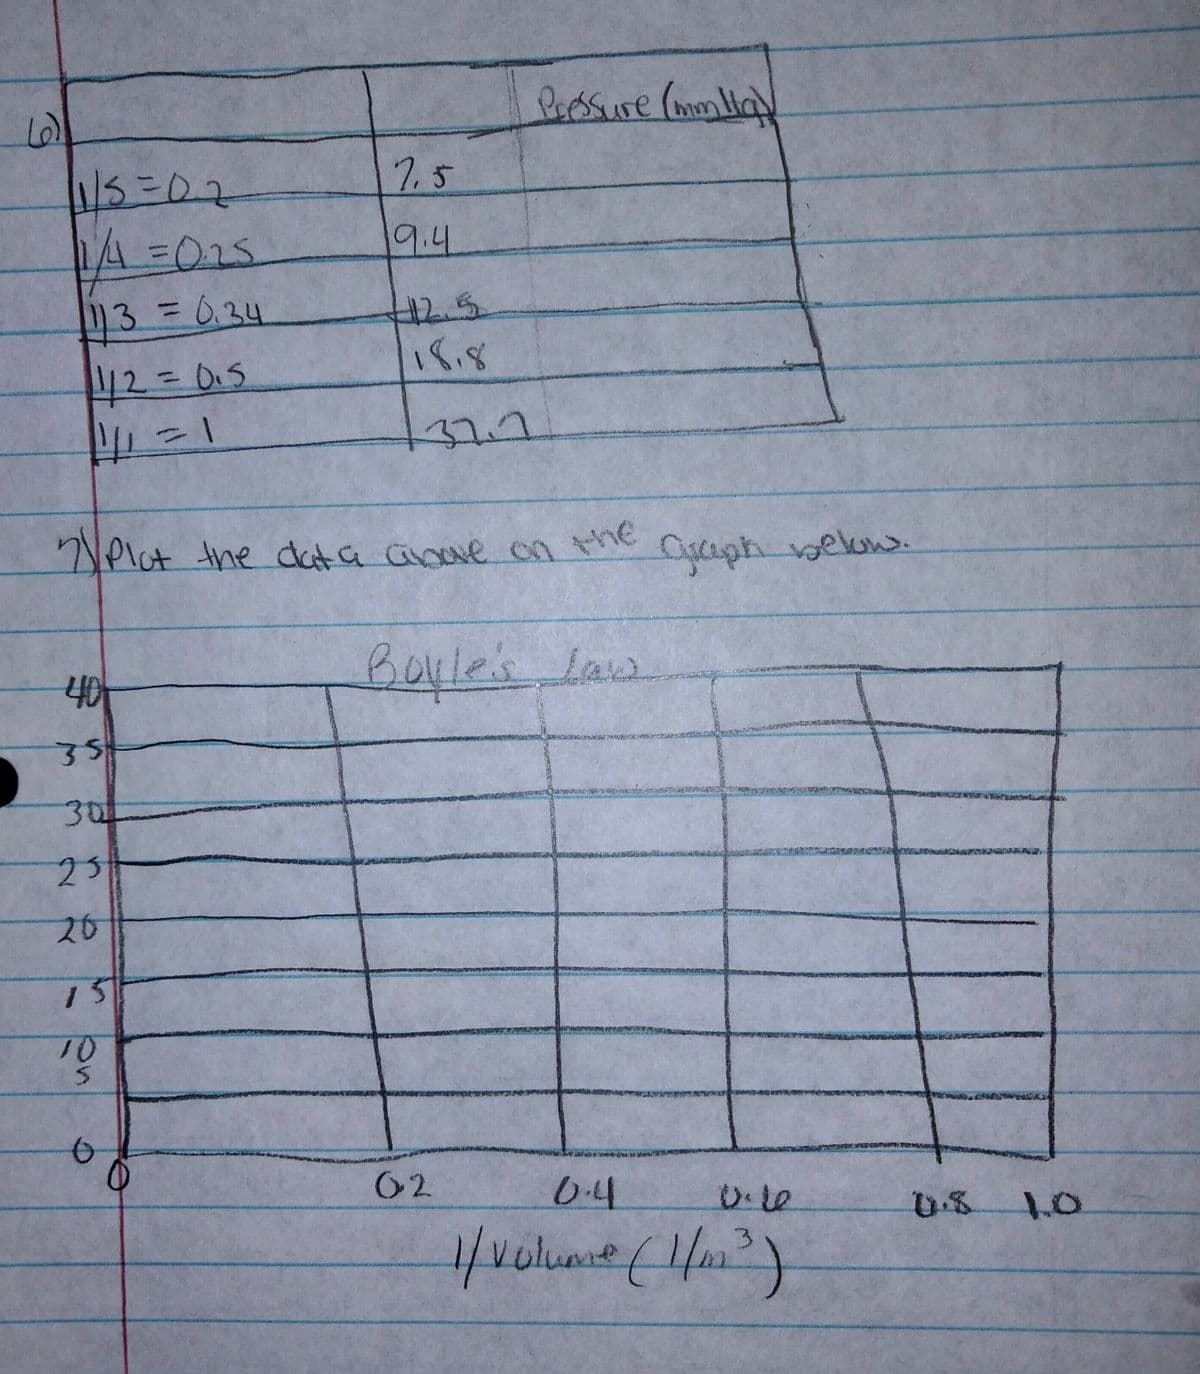 6) Pressure (mmHg)
1/5 = 0.2 7.5
1/4 = 0.25 9.4
1/3 = 0.34 12.5
1/2 = 0.5 18.8
1/1 = 1 37.7
7) Plot the data above on the Graph below.
Boyle's Law
40
35
30
25
20
15
10
5
0
0 0.2 0.4 0.6 0.8 1.0
1/Volume (1/m³)